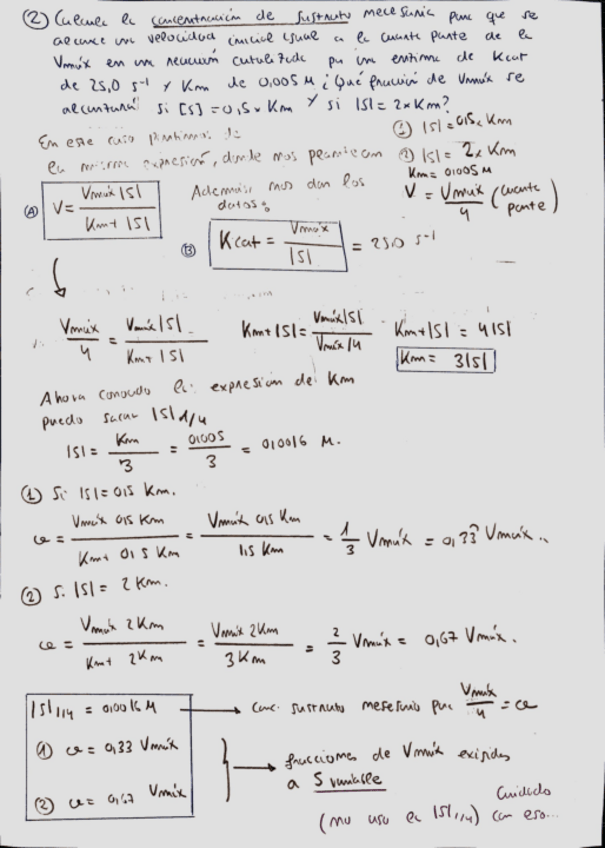 ② Calcule la concentración de sustrato necesaria para que se
alcance una velocidad inicial igual a la cuarta parte de la
Vmáx en una reacción catalizada por una enzima de Kcat
de 25,0 s⁻¹ y Km de 0,005 M ¿Qué fracción de Vmáx se
alcanzará si [S] = 0,5 x Km y si |S| = 2 x Km?
En este caso partimos de
la misma expresión, donde nos
① |S| = 0,5 x Km
② |S| = 2 x Km
Km = 0,005 M
V = Vmáx / 4 (cuarta parte)
Ⓐ V = Vmáx |S| / Km + |S|
Además, nos dan los
datos:
Ⓑ Kcat = Vmáx / |S| = 25,0 s⁻¹
Vmáx / 4 = Vmáx |S| / Km + |S|
Km + |S| = Vmáx |S| / Vmáx/4
Km + |S| = 4 |S|
Km = 3|S|
Ahora conocido la expresión de Km
puedo sacar |S| 1/4
|S| = Km / 3 = 0,005 / 3 = 0,0016 M.
① Si |S| = 0,5 Km.
= Vmáx 0,5 Km / Km + 0,5 Km = Vmáx 0,5 Km / 1,5 Km = 1/3 Vmáx = 0,33 Vmáx.
② Si |S| = 2 Km.
= Vmáx 2Km / Km + 2Km = Vmáx 2Km / 3Km = 2/3 Vmáx = 0,67 Vmáx.
|S| 1/4 = 0,0016 M → conc. sustrato necesario para Vmáx / 4 =
① = 0,33 Vmáx
② = 0,67 Vmáx
→ fracciones de Vmáx
a S variable
Cuidado
(no uso el |S| 1/4) con eso...